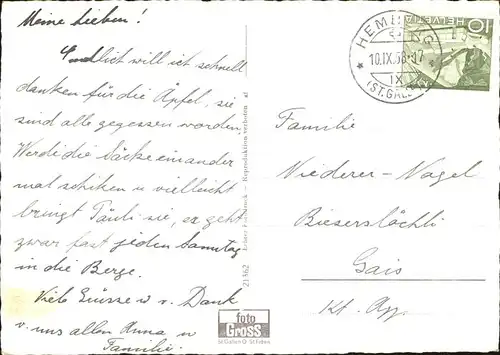 Meine Lieben!
Endlich will ich schnell
danken für die Äpfel, sie
sind alle gegessen worden.
Werde die Säcke ein ander
mal schiken u vielleicht
bringt Päuli sie, er geht
zwar fast jeden Samstag
in die Berge.
Viele Grüsse u v. Dank
v. uns allen Anna u
Familie.
Echter Fotodruck — Reproduktion verboten
21362
foto
Gross
St.Gallen St.Fiden
HEMBERG
10.IX.58-17
IX
(ST.GALLEN)
10
HELVETIA
Familie
Niederer-Nagel
Gais
Kt. App.